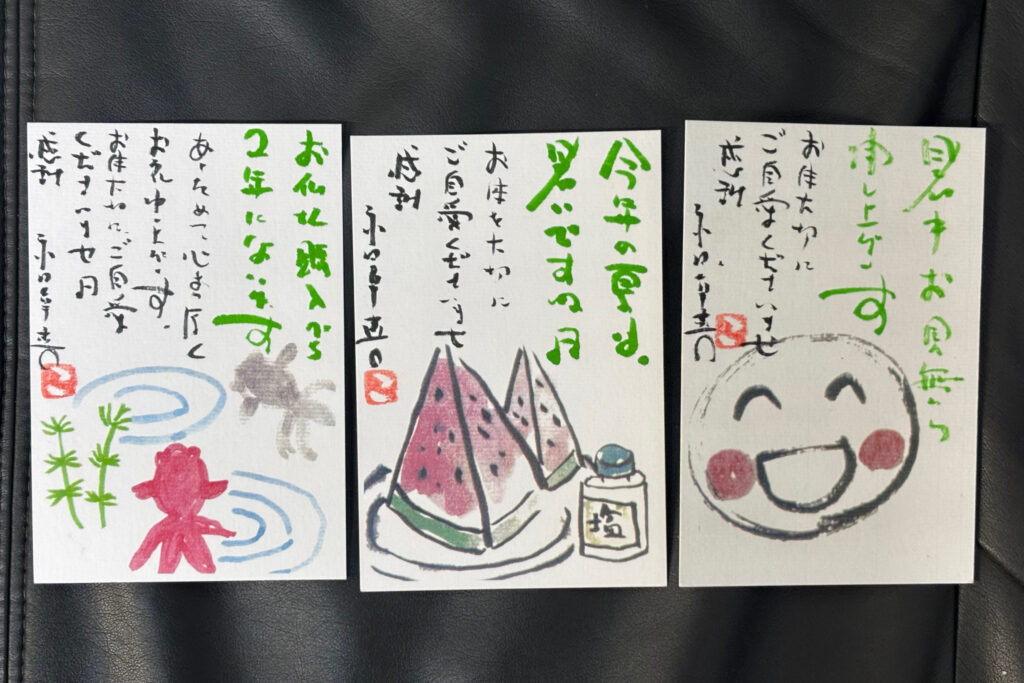 お仏壇購入から
2年になります
あらためて心より厚く
お礼申上げます。
お体大切にご自愛
くださいませ
感謝
今年の夏も、
暑いですね
お体を大切に
ご自愛くださいませ
感謝
塩
暑中お見舞い
申し上げます
お体大切に
ご自愛くださいませ
感謝